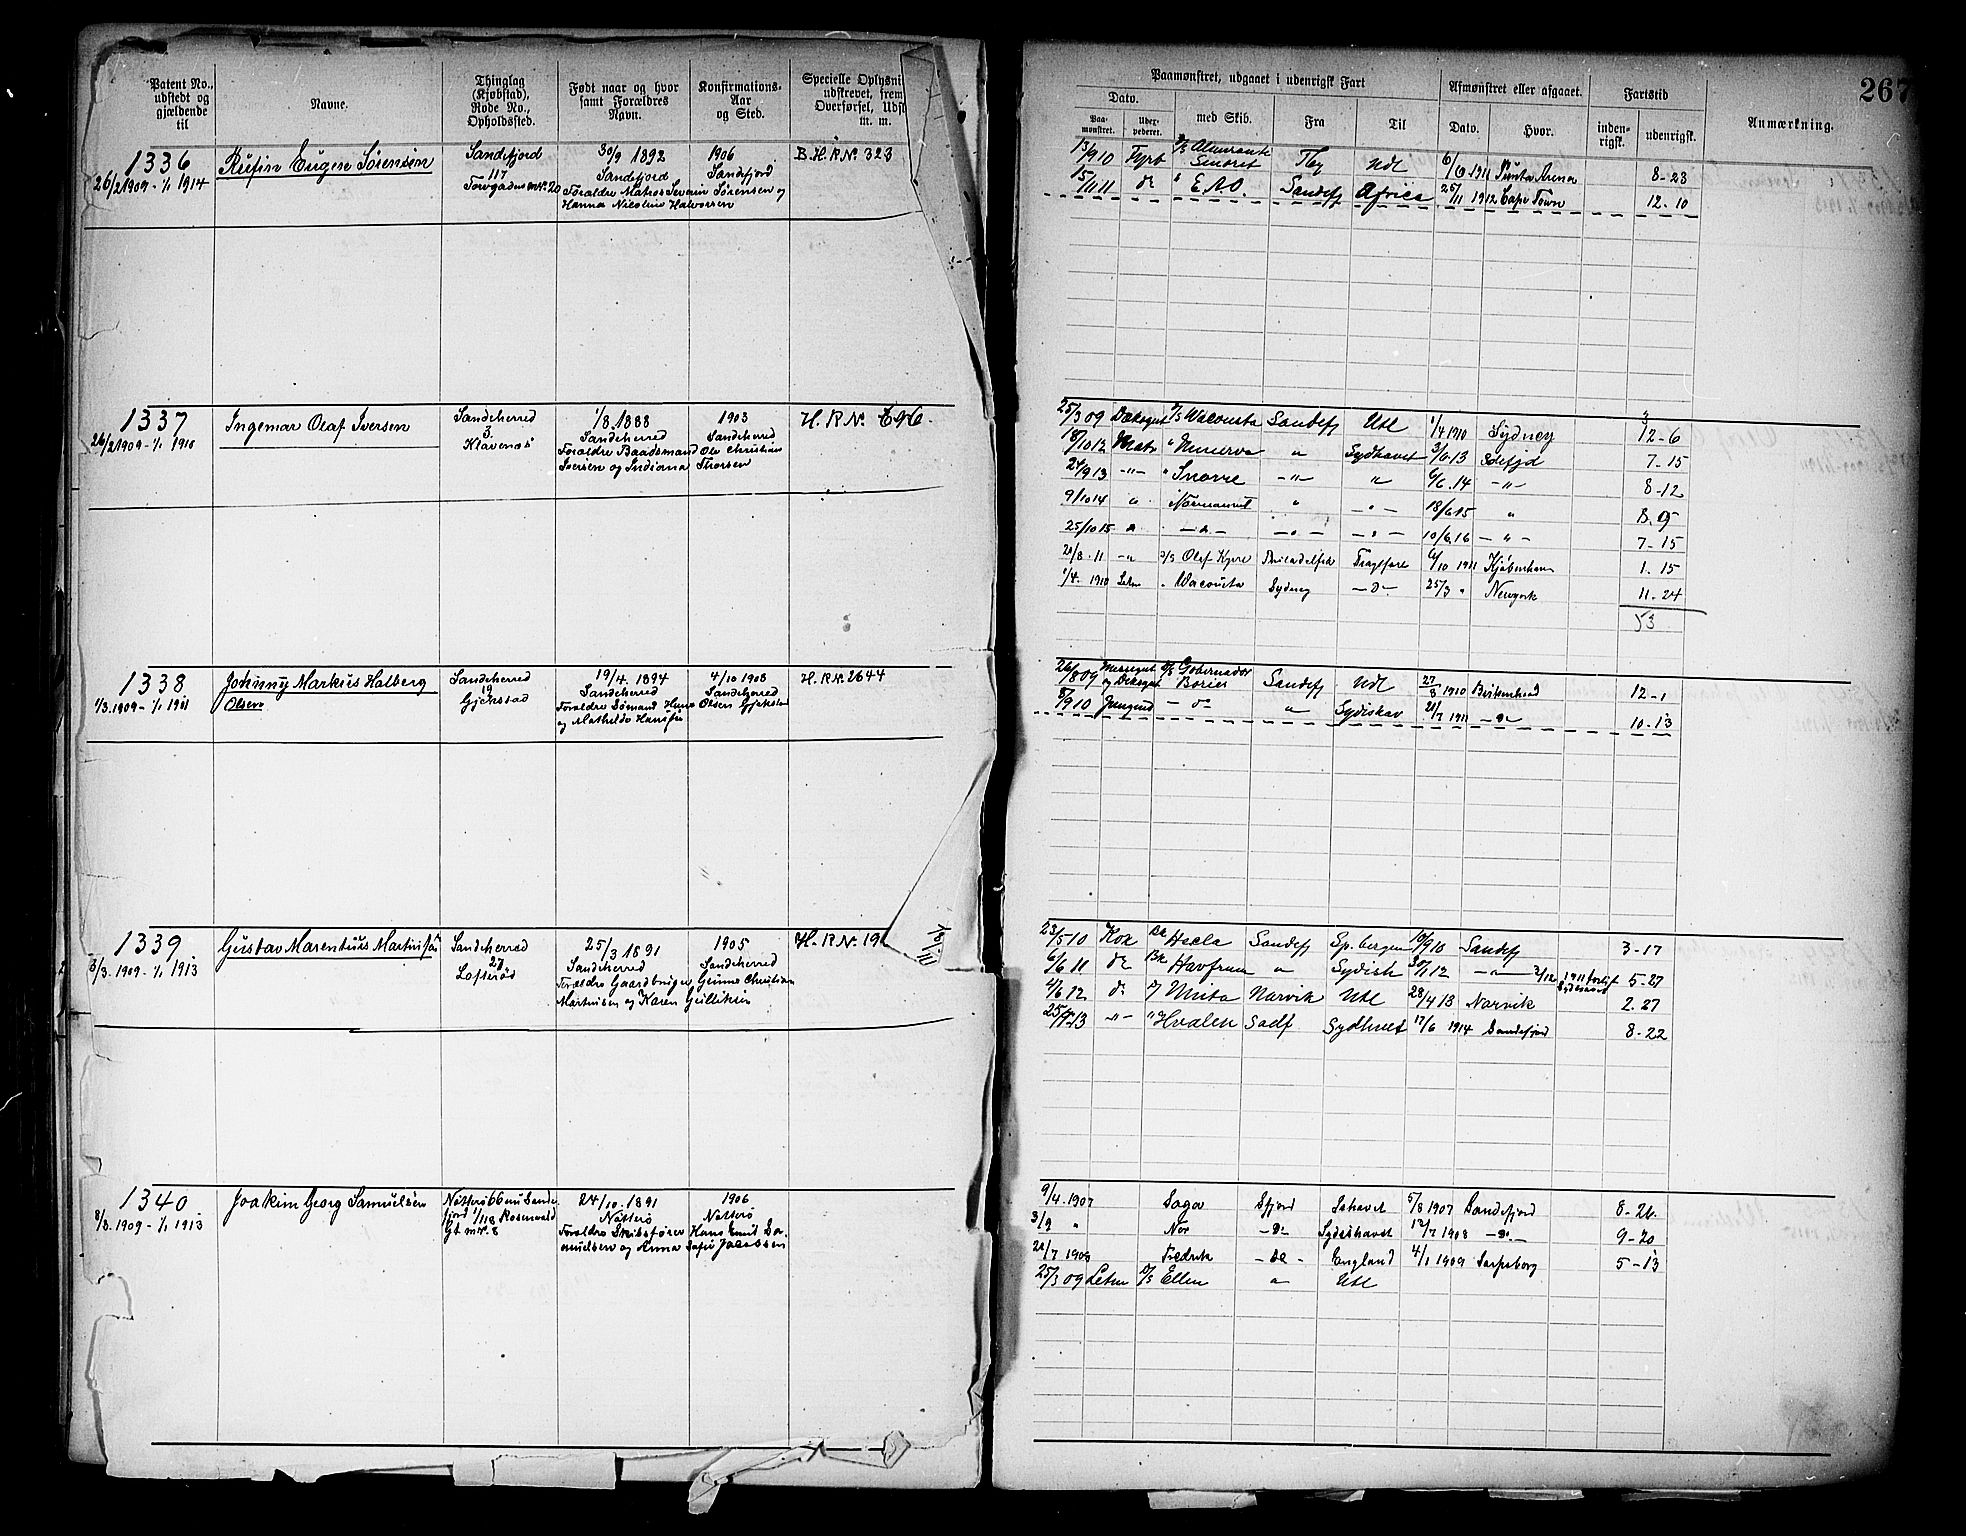 267
Patent No., udstedt og gjældende til
Navne.
Thinglag (Kjøbstad), Rode No., Opholdssted.
Født naar og hvor samt Forældres Navn.
Konfirmations-Aar og Sted.
Specielle Oplysni
udskrevet, frem
Overførsel, Udst
m. m.
Paamønstret, udgaaet i udenrigsk Fart
Afmønstret eller afgaaet.
Fartstid
Anmærkning.
Dato.
Paa-mønstret.
med Skib.
Fra
Til
Dato.
Hvor.
inden-rigsk.
udenrigsk.
1336
26/2 1909 - 1/1 1914
Rufin Eugen Sørensen
Sandefjord
117
30/9 1892
Sandefjord
Forældre Mathas Severin Sørensen og
Hanna Nicoline Halvorsen
1906
Sandefjord
B.H.R.Nº. 323
13/9 10 Fyrb Almirante Tby Udl 6/6 1911 Punta Arena 8-23
15/11 11 do " E.A.O. Sandefj Africa 25/11 1912 Cape Town 12-10
1337
26/2 1909 - 1/1 1910
Ingemar Olaf Iversen
Sandeherred
3
Klavenes
1/8. 1888
Sandeherred
Forældre Baadsmand Ole Christian
Iversen og Indiana Thorsen
1903
Sandeherred
H.R.Nº.
25/3 09 Dæksgut Wacousta Sandefj Utl 1/4 1910 Sydney 12-6
18/10 12 Matr " Minerva " Sydhavet 3/6 13 Sdefjd 7-15
24/9 13 -"- " Snorre -"- " 6/6. 14 -"- 8-12
9/10 14 " Normanvil " -"- 18/6 15 "
25/10 15 " -"- -"- -"- 10/6 16 -"- 7-15
21/8. 11 -" Olaf Kyrre Philadelfia Fragtfare 6/10 1911 Kjøbenhavn 1.15
1/4. 1910 " Wacousta Sydney -d- 25/3 " Newyork 11-24
53
1338
1/3. 1909 - 1/1 1911
Johnny Markus Halberg
Olsen
Sandeherred
19
Gjekstad
19/4. 1894
Sandeherred
Forældre Sømand Hans Olsen Gjekstad
og Mathilde Hansen
4/10 1908
Sandeherred
H.R.Nº. 2644
26/8 09 Messegut Gobernador
og Dæksgut Bories Sandefj Udl 27/8 1910 Birkenhead 12-1
8/9 10 Jungmd - d " Sydishav 21/7 1911 10-13
1339
8/3. 1909 - 1/1 1913
Gustav Marentius Martinsen
Sandeherred
27
Lofterød
25/3 1891
Sandeherred
Forældre Gaardbruger Gunne Christian
Martinsen og Karen Gulliksen
1905
Sandeherred
H.R.Nº. 19
23/5 10 Kok Bk Hecla Sandefj Sp.bergen 10/9 10 Sandefj 3-17
6/6 11 do Bk Havfruen " Sydish 30/1 12 -"- 5-27
4/6 12 do Unita Narvik Utl 28/4 13 Narvik 2.27
13 -"- " Hvalen Sdefj. Sydhavet 17/6 1914 Sandefjord 8-22
1340
8/3. 1909 - 1/1 1913
Joakim Georg Samuelsen
Nøtterø 66 nu Sande-
fjord 1/118 Rosenvold
Gt nr. 8
24/10. 1891
Nøtterø
Forældre Skibsfører Hans Emil Sa-
muelsen og Anna Sofie Jacobsen
1906
Nøtterø
9/4. 1907 Saga Sfjord Ishavet 5/8 1907 Sandefjord 8-26
3/9 " Nor -Do- Sydishavet 12/7 1908 -Do- 9-20
21/7 1908 Fredrik -Do- England 4/1 1909 Sarpsborg 5-13
25/3 09 Ellen " Utl